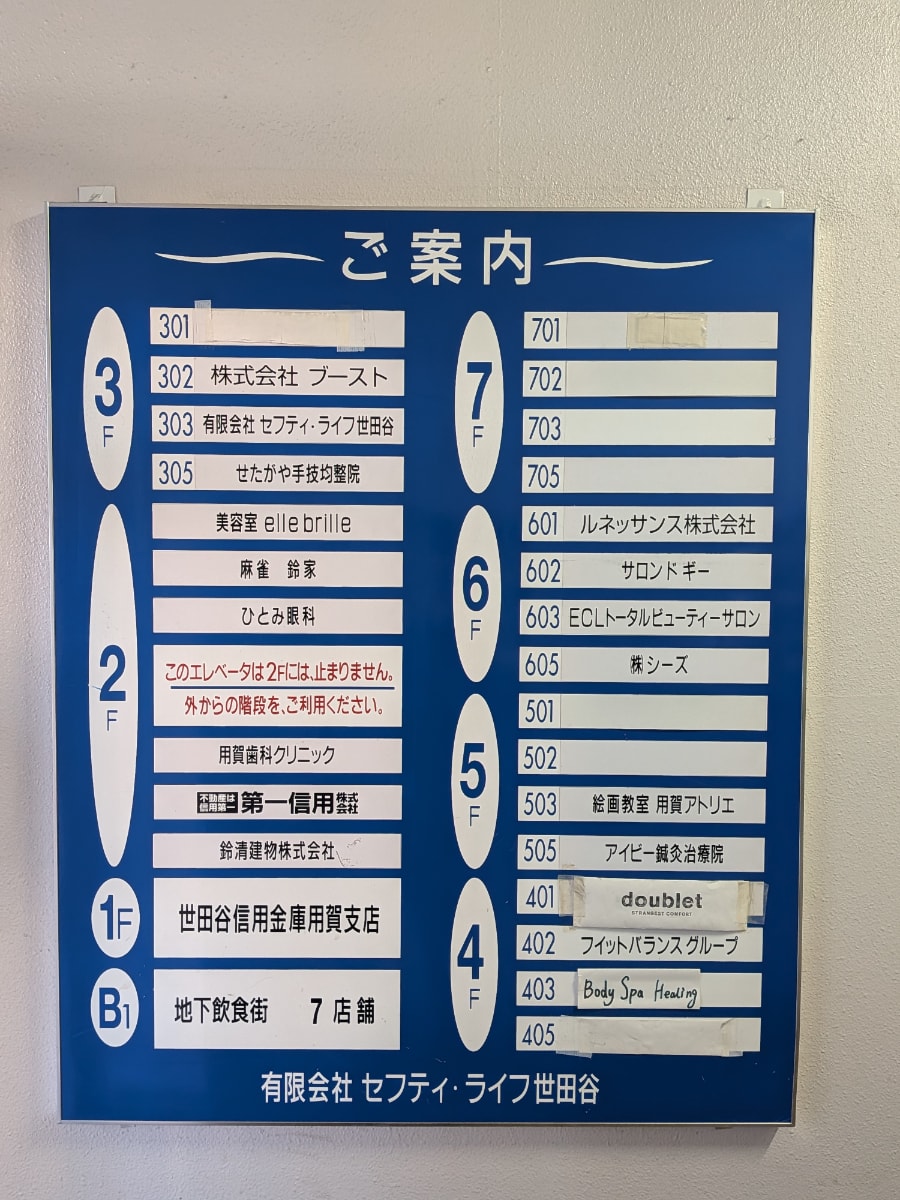 ご案内
3F
301
302 株式会社 ブースト
303 有限会社 セフティ・ライフ世田谷
305 せたがや手技均整院
2F
美容室 elle brille
麻雀 鈴家
ひとみ眼科
このエレベータは2Fには、止まりません。
外からの階段を、ご利用ください。
用賀歯科クリニック
不動産は
信用第一
第一信用株式会社
鈴清建物株式会社
1F
世田谷信用金庫用賀支店
B1
地下飲食街 7店舗
7F
701
702
703
705
6F
601 ルネッサンス株式会社
602 サロンド ギー
603 ECLトータルビューティーサロン
605 ㈱シーズ
5F
501
502
503 絵画教室 用賀アトリエ
505 アイビー鍼灸治療院
4F
401 doublet
STRANGEST COMFORT
402 フイットバランスグループ
403 Body Spa Healing
405
有限会社 セフティ・ライフ世田谷